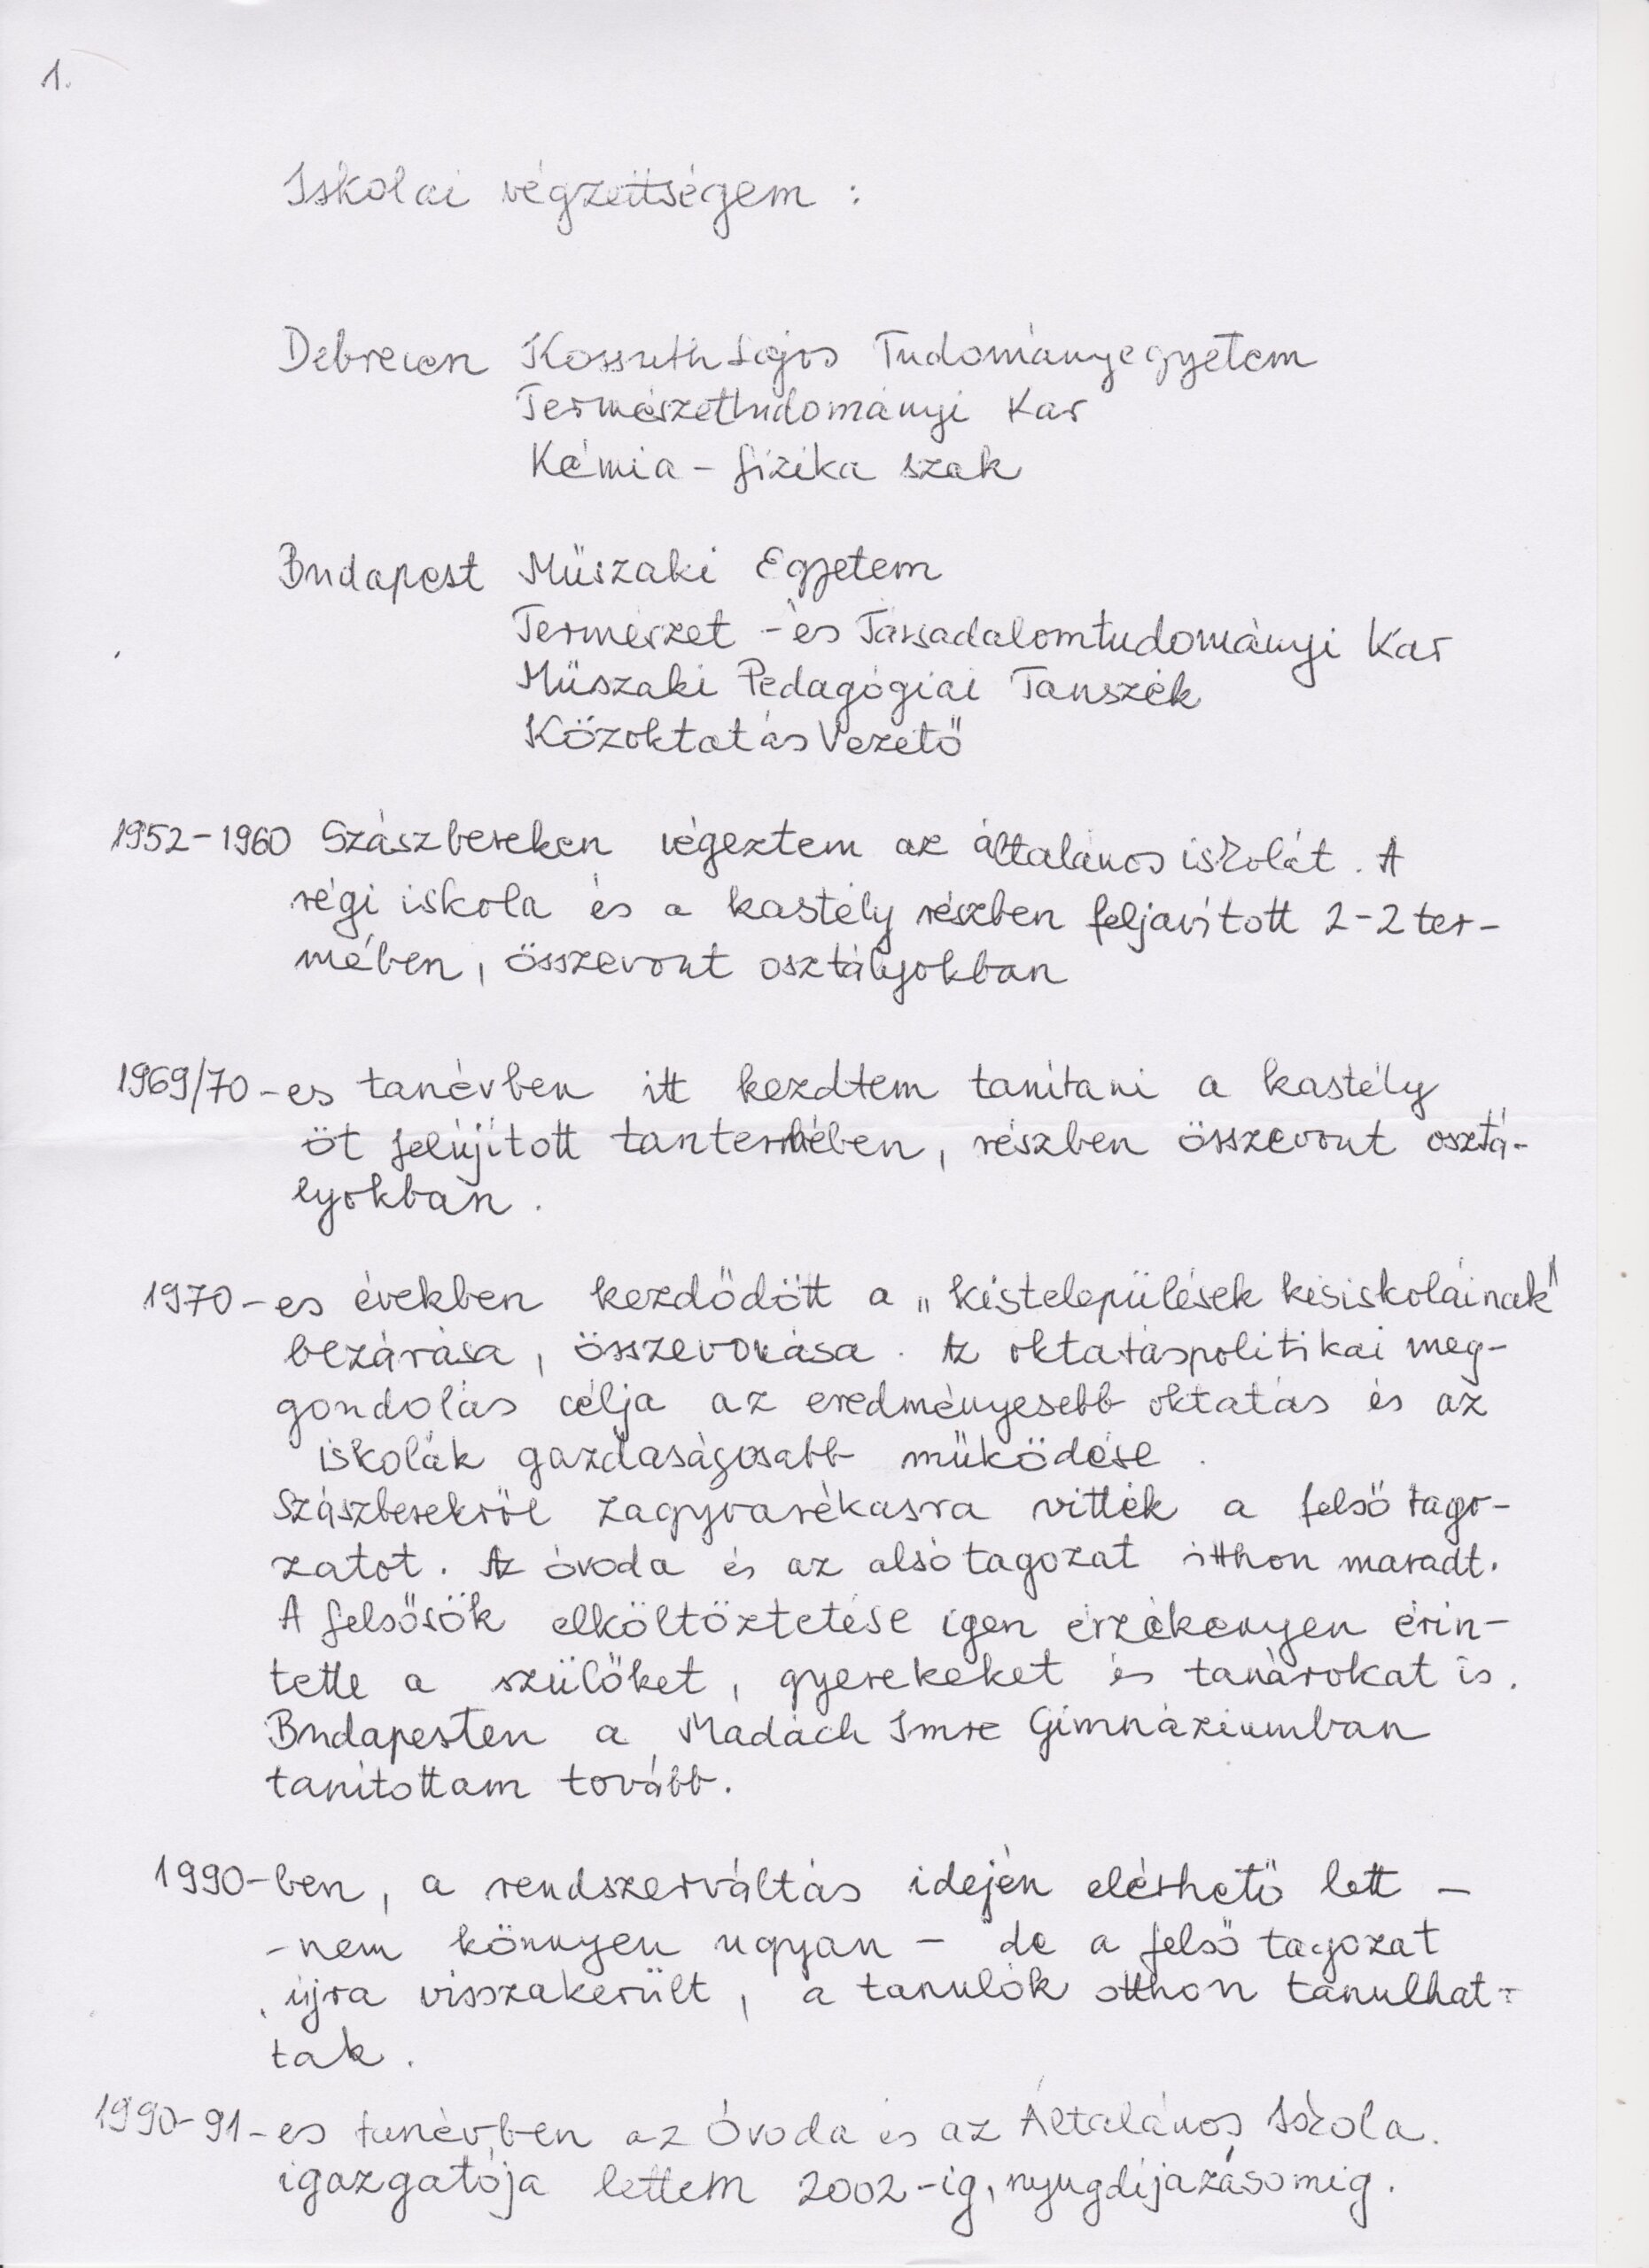 1.
Iskolai végzettségem :
Debrecen Kossuth Lajos Tudományegyetem
Természettudományi Kar
Kémia - fizika szak
Budapest Műszaki Egyetem
Természet - és Társadalomtudományi Kar
Műszaki Pedagógiai Tanszék
Közoktatás Vezető
1952-1960 Szászbereken végeztem az általános iskolát. A
régi iskola és a kastély részben feljavított 2-2 ter-
mében, összevont osztályokban
1969/70-es tanévben itt kezdtem tanítani a kastély
öt felújított tantermében, részben összevont osztá-
lyokban.
1970-es években kezdődött a „kistelepülések kisiskoláinak"
bezárása, összevonása. Az oktatáspolitikai meg-
gondolás célja az eredményesebb oktatás és az
iskolák gazdaságosabb működése.
Szászberekről Zagyvarékasra vitték a felső tago-
zatot. Az óvoda és az alsó tagozat itthon maradt.
A felsősök elköltöztetése igen érzékenyen érin-
tette a szülőket, gyerekeket és tanárokat is.
Budapesten a Madách Imre Gimnáziumban
tanítottam tovább.
1990-ben, a rendszerváltás idején elérhető lett -
- nem könnyen ugyan - de a felső tagozat
újra visszakerült, a tanulók otthon tanulhat-
tak.
1990-91-es tanévben az Óvoda és az Általános Iskola.
igazgatója lettem 2002-ig, nyugdíjazásomig.